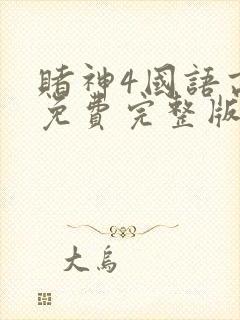 賭神4國語
免費完整版
大烏